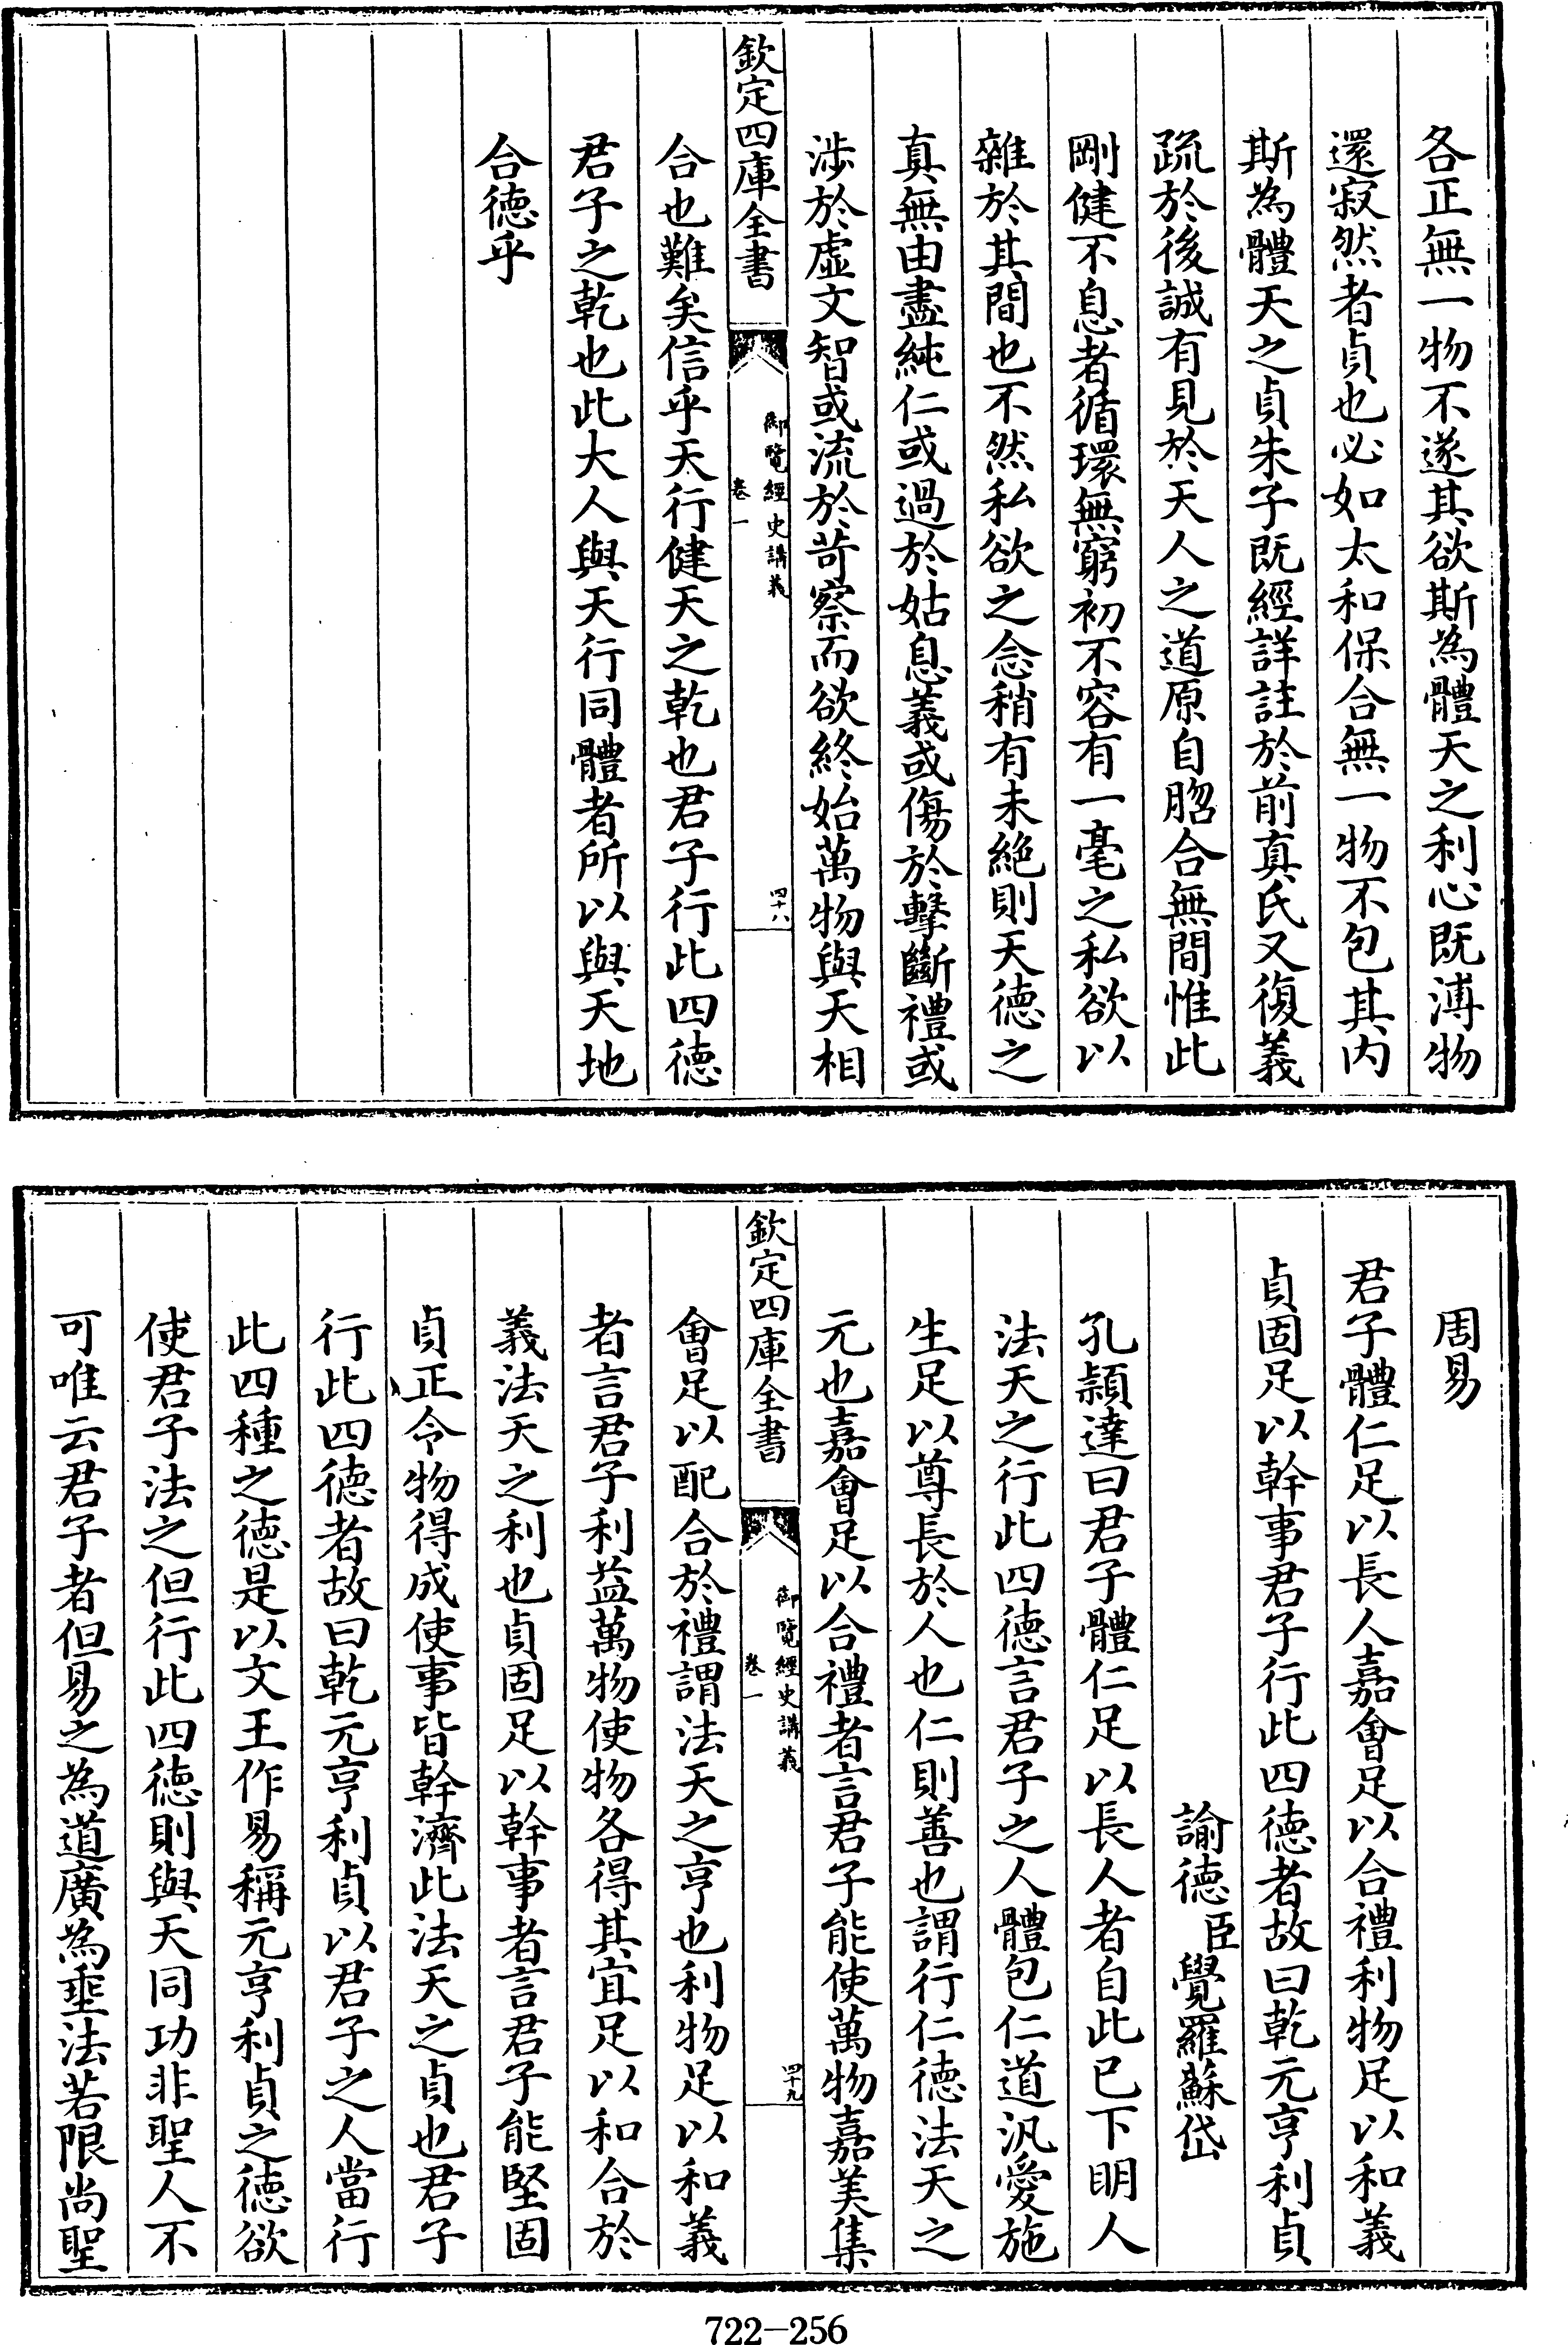 各正無一物不遂其欲斯為體天之利心既溥物
還寂然者貞也必如太和保合無一物不包其内
斯為體天之貞朱子既經詳註於前真氏又復義
疏於後誠有見於天人之道原自脗合無間惟此
剛健不息者循環無窮初不容有一毫之私欲以
雜於其間也不然私欲之念稍有未絶則天德之
真無由盡純仁或過於姑息義或傷於擊斷禮或
渉於虛文智或流於苛察而欲終始萬物與天相
欽定四庫全書
御覽經史講義
卷一
四十八
合也難矣信乎天行健天之乾也君子行此四德
君子之乾也此大人與天行同體者所以與天地
合德乎
周易
君子體仁足以長人嘉會足以合禮利物足以和義
貞固足以幹事君子行此四德者故曰乾元亨利貞
諭德臣覺羅蘇岱
孔穎達曰君子體仁足以長人者自此已下明人
法天之行此四德言君子之人體包仁道汎愛施
生足以尊長於人也仁則善也謂行仁德法天之
元也嘉會足以合禮者言君子能使萬物嘉美集
欽定四庫全書
御覽經史講義
卷一
四十九
會足以配合於禮謂法天之亨也利物足以和義
者言君子利益萬物使物各得其宜足以和合於
義法天之利也貞固足以幹事者言君子能堅固
貞正令物得成使事皆幹濟此法天之貞也君子
行此四德者故曰乾元亨利貞以君子之人當行
此四種之德是以文王作易稱元亨利貞之德欲
使君子法之但行此四德則與天同功非聖人不
可唯云君子者但易之為道廣為垂法若限尚聖
722-256